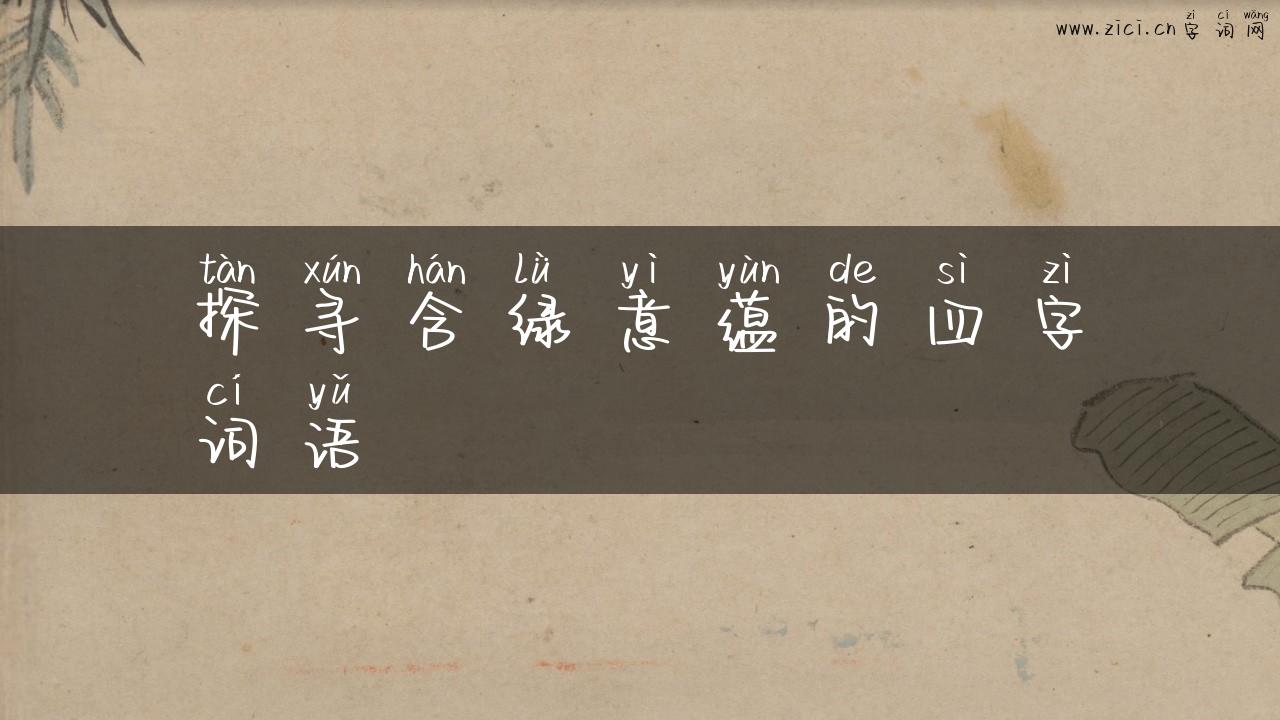 zì cí wǎng
www.zici.cn 字 词 网
tàn xún hán lǜ yì yùn de sì zì
探 寻 含 绿 意 蕴 的 四 字
cí yǔ
词 语